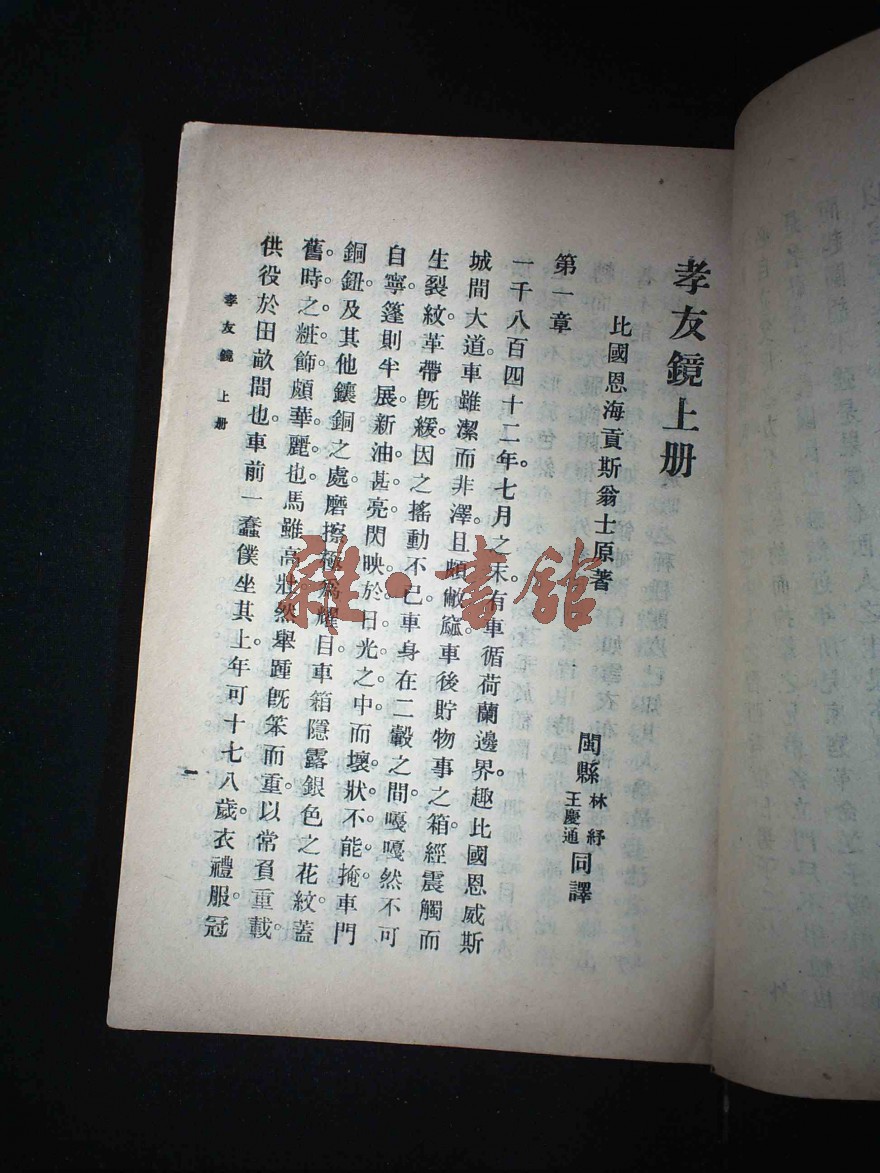 孝友鏡上册
比國恩海貢斯翁士原著
閩縣 林紓 王慶通 同譯
第一章
一千八百四十二年七月之末。有車循荷蘭邊界趣比國恩威斯
城間大道。車雖潔而非澤。且頗敝窳。車後貯物事之箱。經震觸而
生裂紋。革帶既緩。因之搖動不已。車身在二轂之間。嘎嘎然不可
自寧。篷則半展。新油甚亮。閃映於日光之中。而壞狀不能掩。車門
銅鈕及其他鑲銅之處。磨擦極為耀目。車箱隱露銀色之花紋。蓋
舊時之粧飾頗華麗也。馬雖高壯。然舉踵既笨而重。以常負重載。
供役於田畝間也。車前一蠢僕坐其上。年可十七八歲。衣禮服。冠
孝友鏡 上册
一
雜·書館